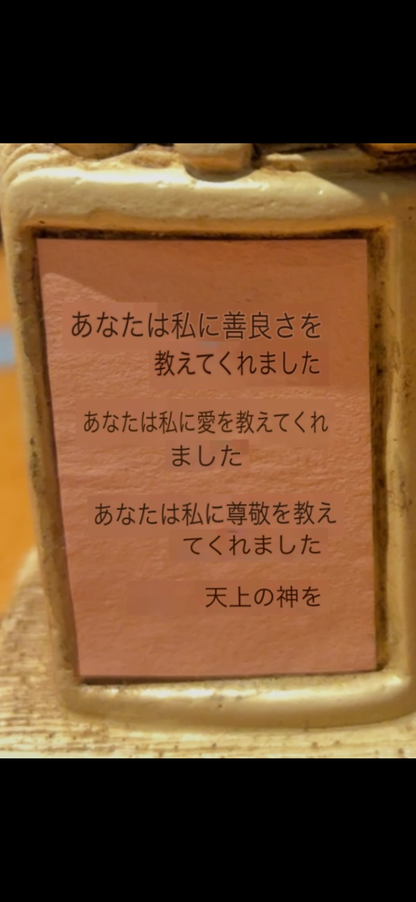 あなたは私に善良さを
教えてくれました
あなたは私に愛を教えてくれ
ました
あなたは私に尊敬を教え
てくれました
天上の神を